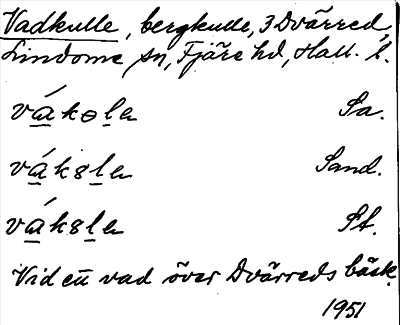 Vadkulle, bergkulle, 3 Dvärred,
Lindome sn, Fjäre hd, Hall. l.
vákɵla Sa.
vák8la Sand.
vák8la St.
Vid en vad över Dvärreds bäck.
1951